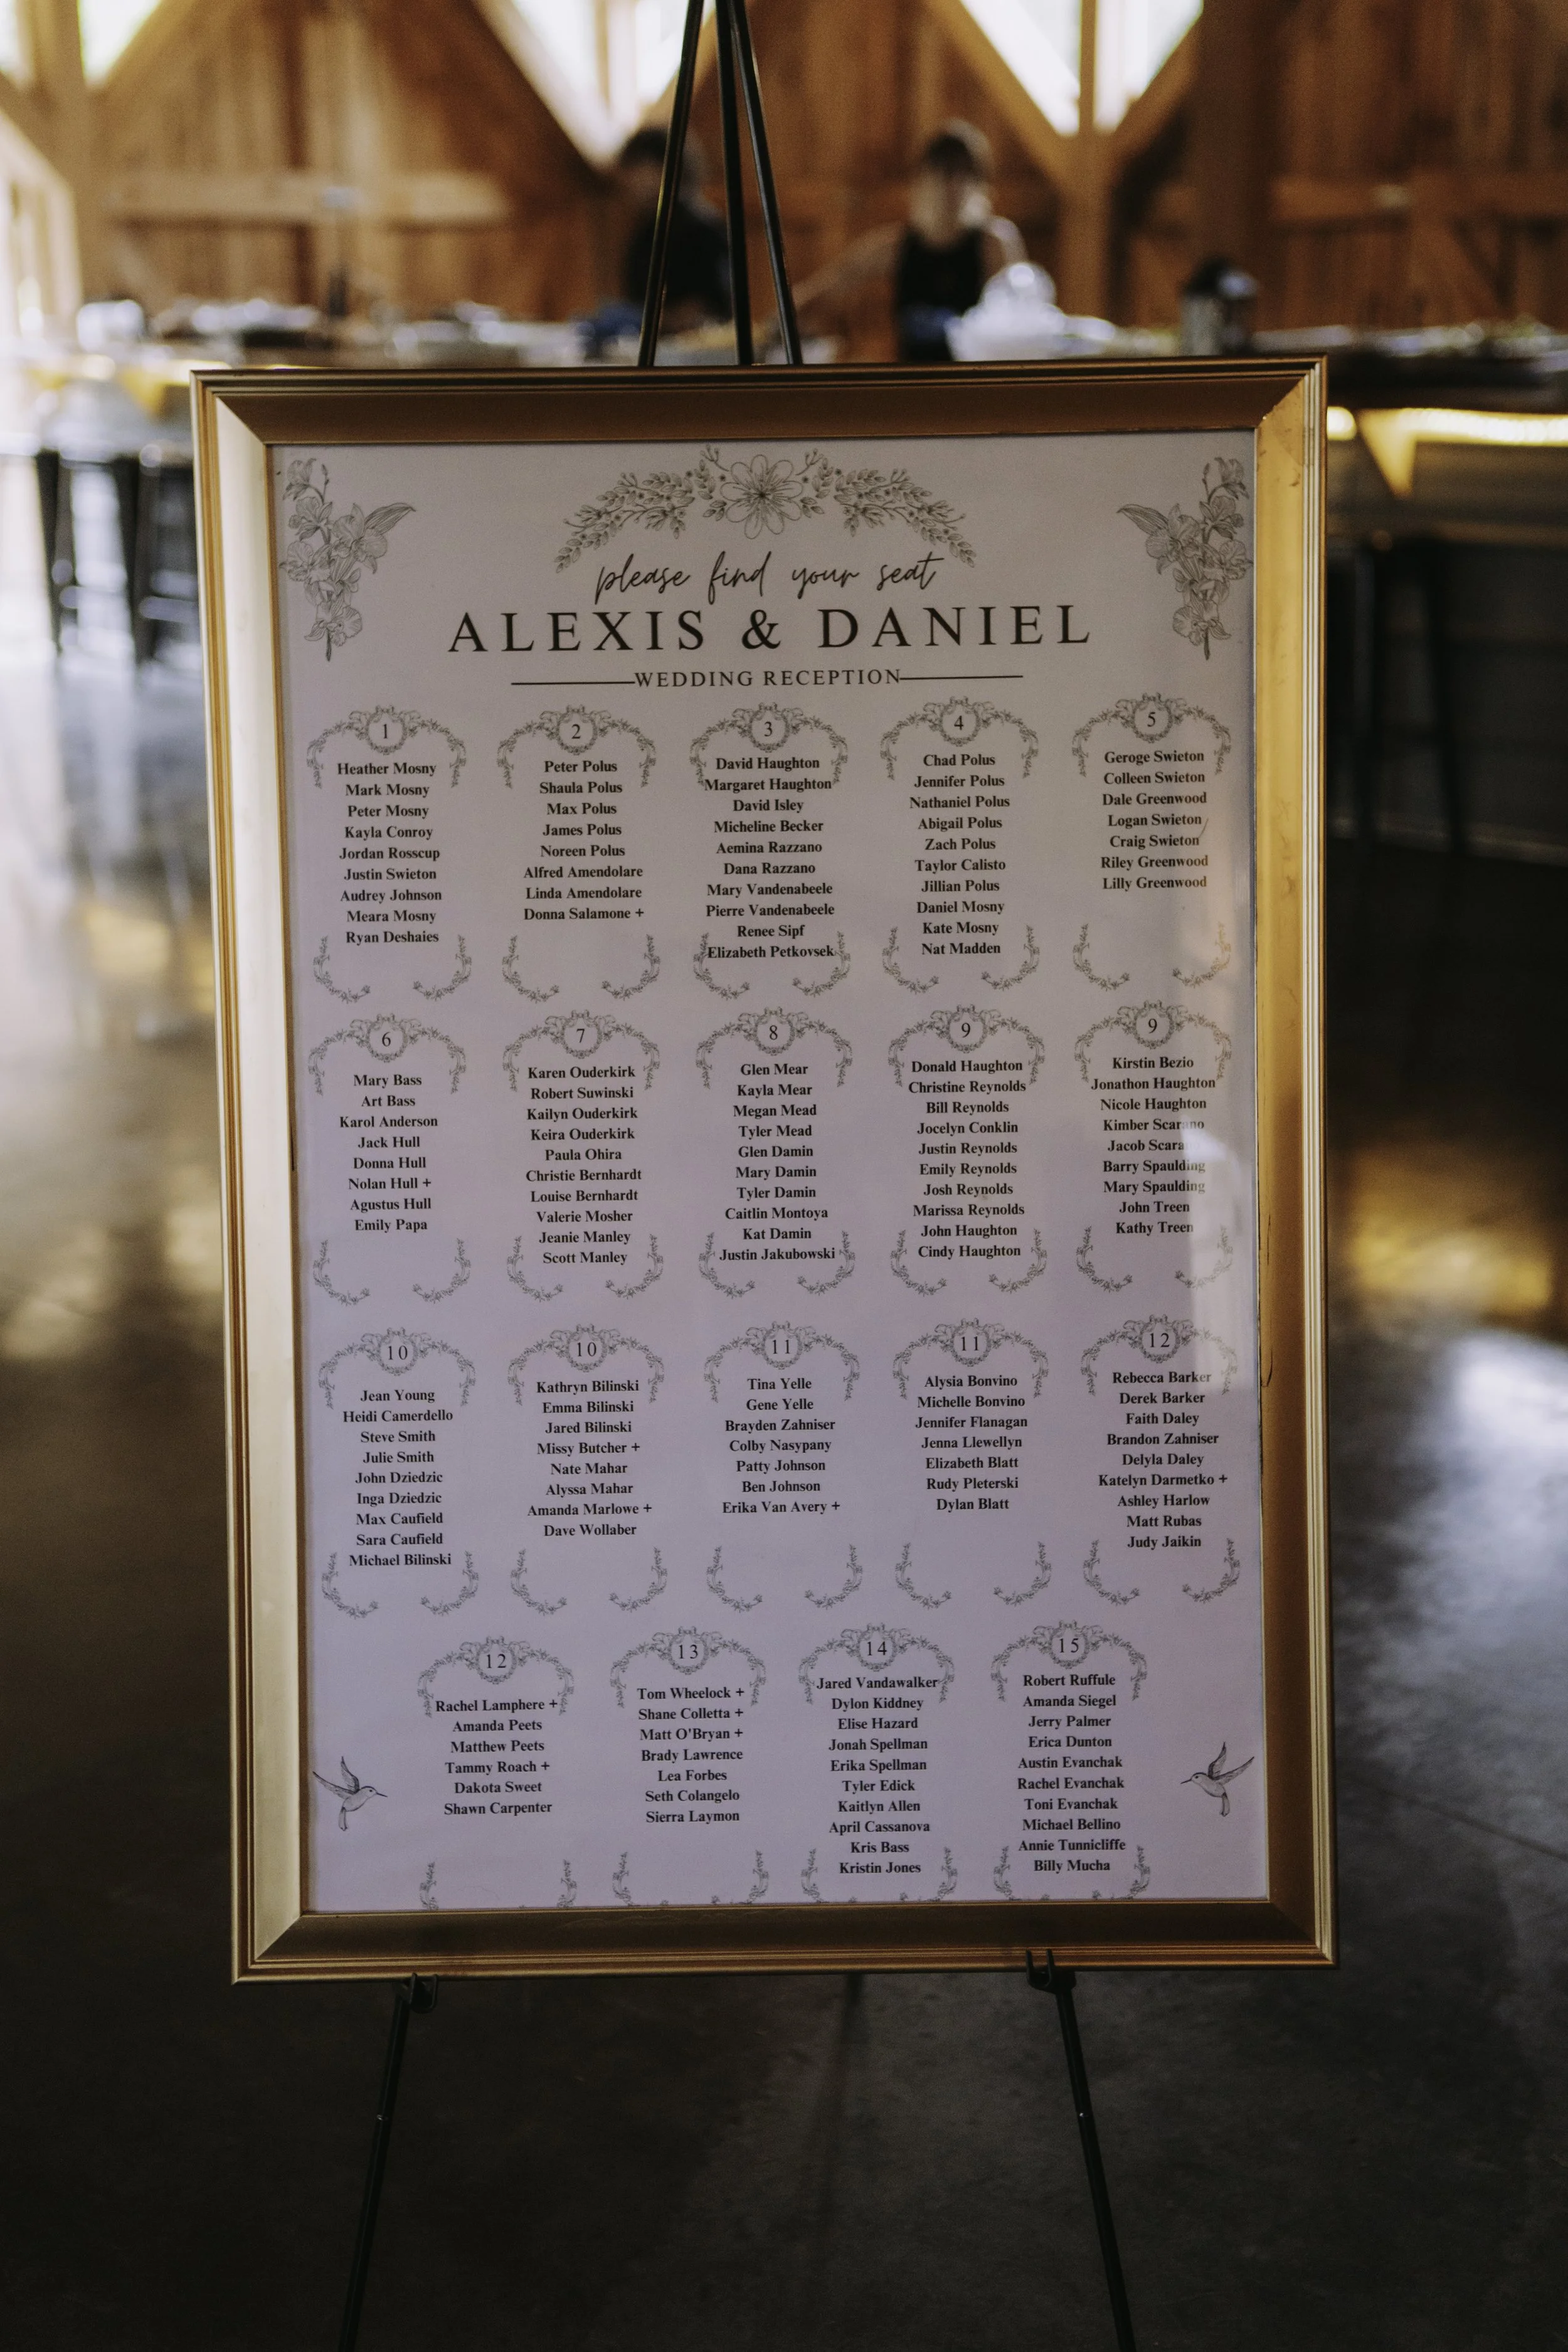 please find your seat
ALEXIS & DANIEL
WEDDING RECEPTION
1
Heather Mosny
Mark Mosny
Peter Mosny
Kayla Conroy
Jordan Rosscup
Justin Swieton
Audrey Johnson
Meara Mosny
Ryan Deshaies
2
Peter Polus
Shaula Polus
Max Polus
James Polus
Noreen Polus
Alfred Amendolare
Linda Amendolare
Donna Salamone +
3
David Haughton
Margaret Haughton
David Isley
Micheline Becker
Aemina Razzano
Dana Razzano
Mary Vandenabeele
Pierre Vandenabeele
Renee Sipf
Elizabeth Petkovsek
4
Chad Polus
Jennifer Polus
Nathaniel Polus
Abigail Polus
Zach Polus
Taylor Calisto
Jillian Polus
Daniel Mosny
Kate Mosny
Nat Madden
5
Geroge Swieton
Colleen Swieton
Dale Greenwood
Logan Swieton
Craig Swieton
Riley Greenwood
Lilly Greenwood
6
Mary Bass
Art Bass
Karol Anderson
Jack Hull
Donna Hull
Nolan Hull +
Agustus Hull
Emily Papa
7
Karen Ouderkirk
Robert Suwinski
Kailyn Ouderkirk
Keira Ouderkirk
Paula Ohira
Christie Bernhardt
Louise Bernhardt
Valerie Mosher
Jeanie Manley
Scott Manley
8
Glen Mear
Kayla Mear
Megan Mead
Tyler Mead
Glen Damin
Mary Damin
Tyler Damin
Caitlin Montoya
Kat Damin
Justin Jakubowski
9
Donald Haughton
Christine Reynolds
Bill Reynolds
Jocelyn Conklin
Justin Reynolds
Emily Reynolds
Josh Reynolds
Marissa Reynolds
John Haughton
Cindy Haughton
9
Kirstin Bezio
Jonathon Haughton
Nicole Haughton
Kimber Scarano
Jacob Scara
Barry Spaulding
Mary Spaulding
John Treen
Kathy Treen
10
Jean Young
Heidi Camerdello
Steve Smith
Julie Smith
John Dziedzic
Inga Dziedzic
Max Caufield
Sara Caufield
Michael Bilinski
10
Kathryn Bilinski
Emma Bilinski
Jared Bilinski
Missy Butcher +
Nate Mahar
Alyssa Mahar
Amanda Marlowe +
Dave Wollaber
11
Tina Yelle
Gene Yelle
Brayden Zahniser
Colby Nasypany
Patty Johnson
Ben Johnson
Erika Van Avery +
11
Alysia Bonvino
Michelle Bonvino
Jennifer Flanagan
Jenna Llewellyn
Elizabeth Blatt
Rudy Pleterski
Dylan Blatt
12
Rebecca Barker
Derek Barker
Faith Daley
Brandon Zahniser
Delyla Daley
Katelyn Darmetko +
Ashley Harlow
Matt Rubas
Judy Jaikin
12
Rachel Lamphere +
Amanda Peets
Matthew Peets
Tammy Roach +
Dakota Sweet
Shawn Carpenter
13
Tom Wheelock +
Shane Colletta +
Matt O'Bryan +
Brady Lawrence
Lea Forbes
Seth Colangelo
Sierra Laymon
14
Jared Vandawalker
Dylon Kiddney
Elise Hazard
Jonah Spellman
Erika Spellman
Tyler Edick
Kaitlyn Allen
April Cassanova
Kris Bass
Kristin Jones
15
Robert Ruffule
Amanda Siegel
Jerry Palmer
Erica Dunton
Austin Evanchak
Rachel Evanchak
Toni Evanchak
Michael Bellino
Annie Tunnicliffe
Billy Mucha